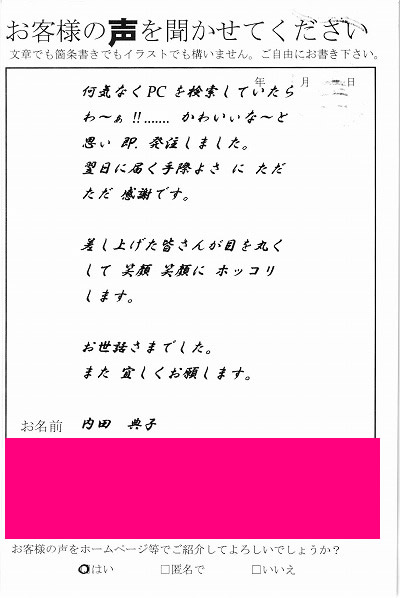 お客様の声を聞かせてください
文章でも箇条書きでもイラストでも構いません。ご自由にお書き下さい。
年 月 日
何気なくPCを検索していたら
わ～ぁ !!....... かわいいな～と
思い 即.発注しました。
翌日に届く手際よさ に ただ
ただ 感謝です。
差し上げた皆さんが目を丸く
して 笑顔 笑顔に ホッコリ
します。
お世話さまでした。
また 宜しくお願します。
お名前 内田 典子
お客様の声をホームページ等でご紹介してよろしいでしょうか？
はい □匿名で □いいえ